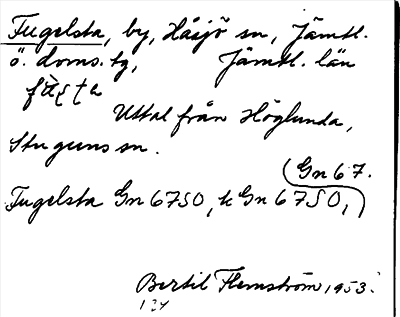 Fugelsta, by, Håsjö sn, Jämtl.
ö. doms. tg, Jämtl. län
Uttal från Höglunda,
Stuguns sn.
(Gn 67.
Fugelsta Gn 6750, k Gn 6750,)
Bertil Flemström 1953.